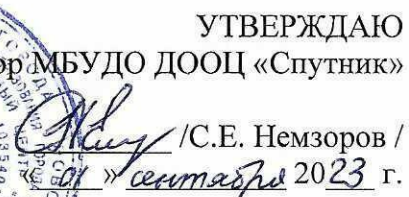 УТВЕРЖДАЮ
ор МБУДО ДООЦ «Спутник»
/С.Е. Немзоров /
« 01 » сентября 2023 г.